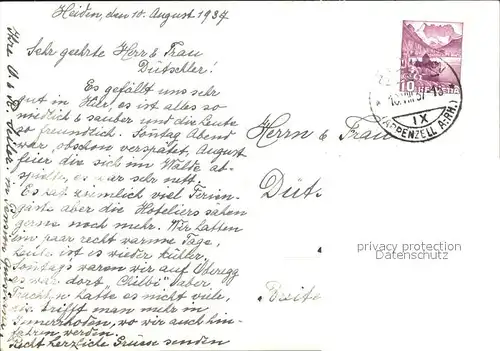 Heiden, den 10. August 1937
Sehr geehrte Herr & Frau
Dütschler!
Es gefällt uns sehr
gut in Hier, es ist alles so
niedlich & sauber und die Leute
so freundlich. Sontag Abend
war, obschon verspätet, August
feier die sich im Walde ab-
spielte, es war sehr nett.
Es hat ziemlich viel Ferien-
gäste aber die Hoteliers sähen
gerne noch mehr. Wir hatten
ein paar recht warme Tage,
heute ist es wieder küller,
Sontags waren wir auf Oberegg
es war dort "Chilbi" aber
Trachten hatte es nicht viele,
die trifft man mehr in
Innerrhoden, wo wir auch hin-
fahren werden.
Recht herzliche Grüsse senden
Herrn & Frau
Düts
Breite
10
HELVETIA
10.VIII.37-18
IX
(APPENZELL A.RH.)
privacy protection
watermark